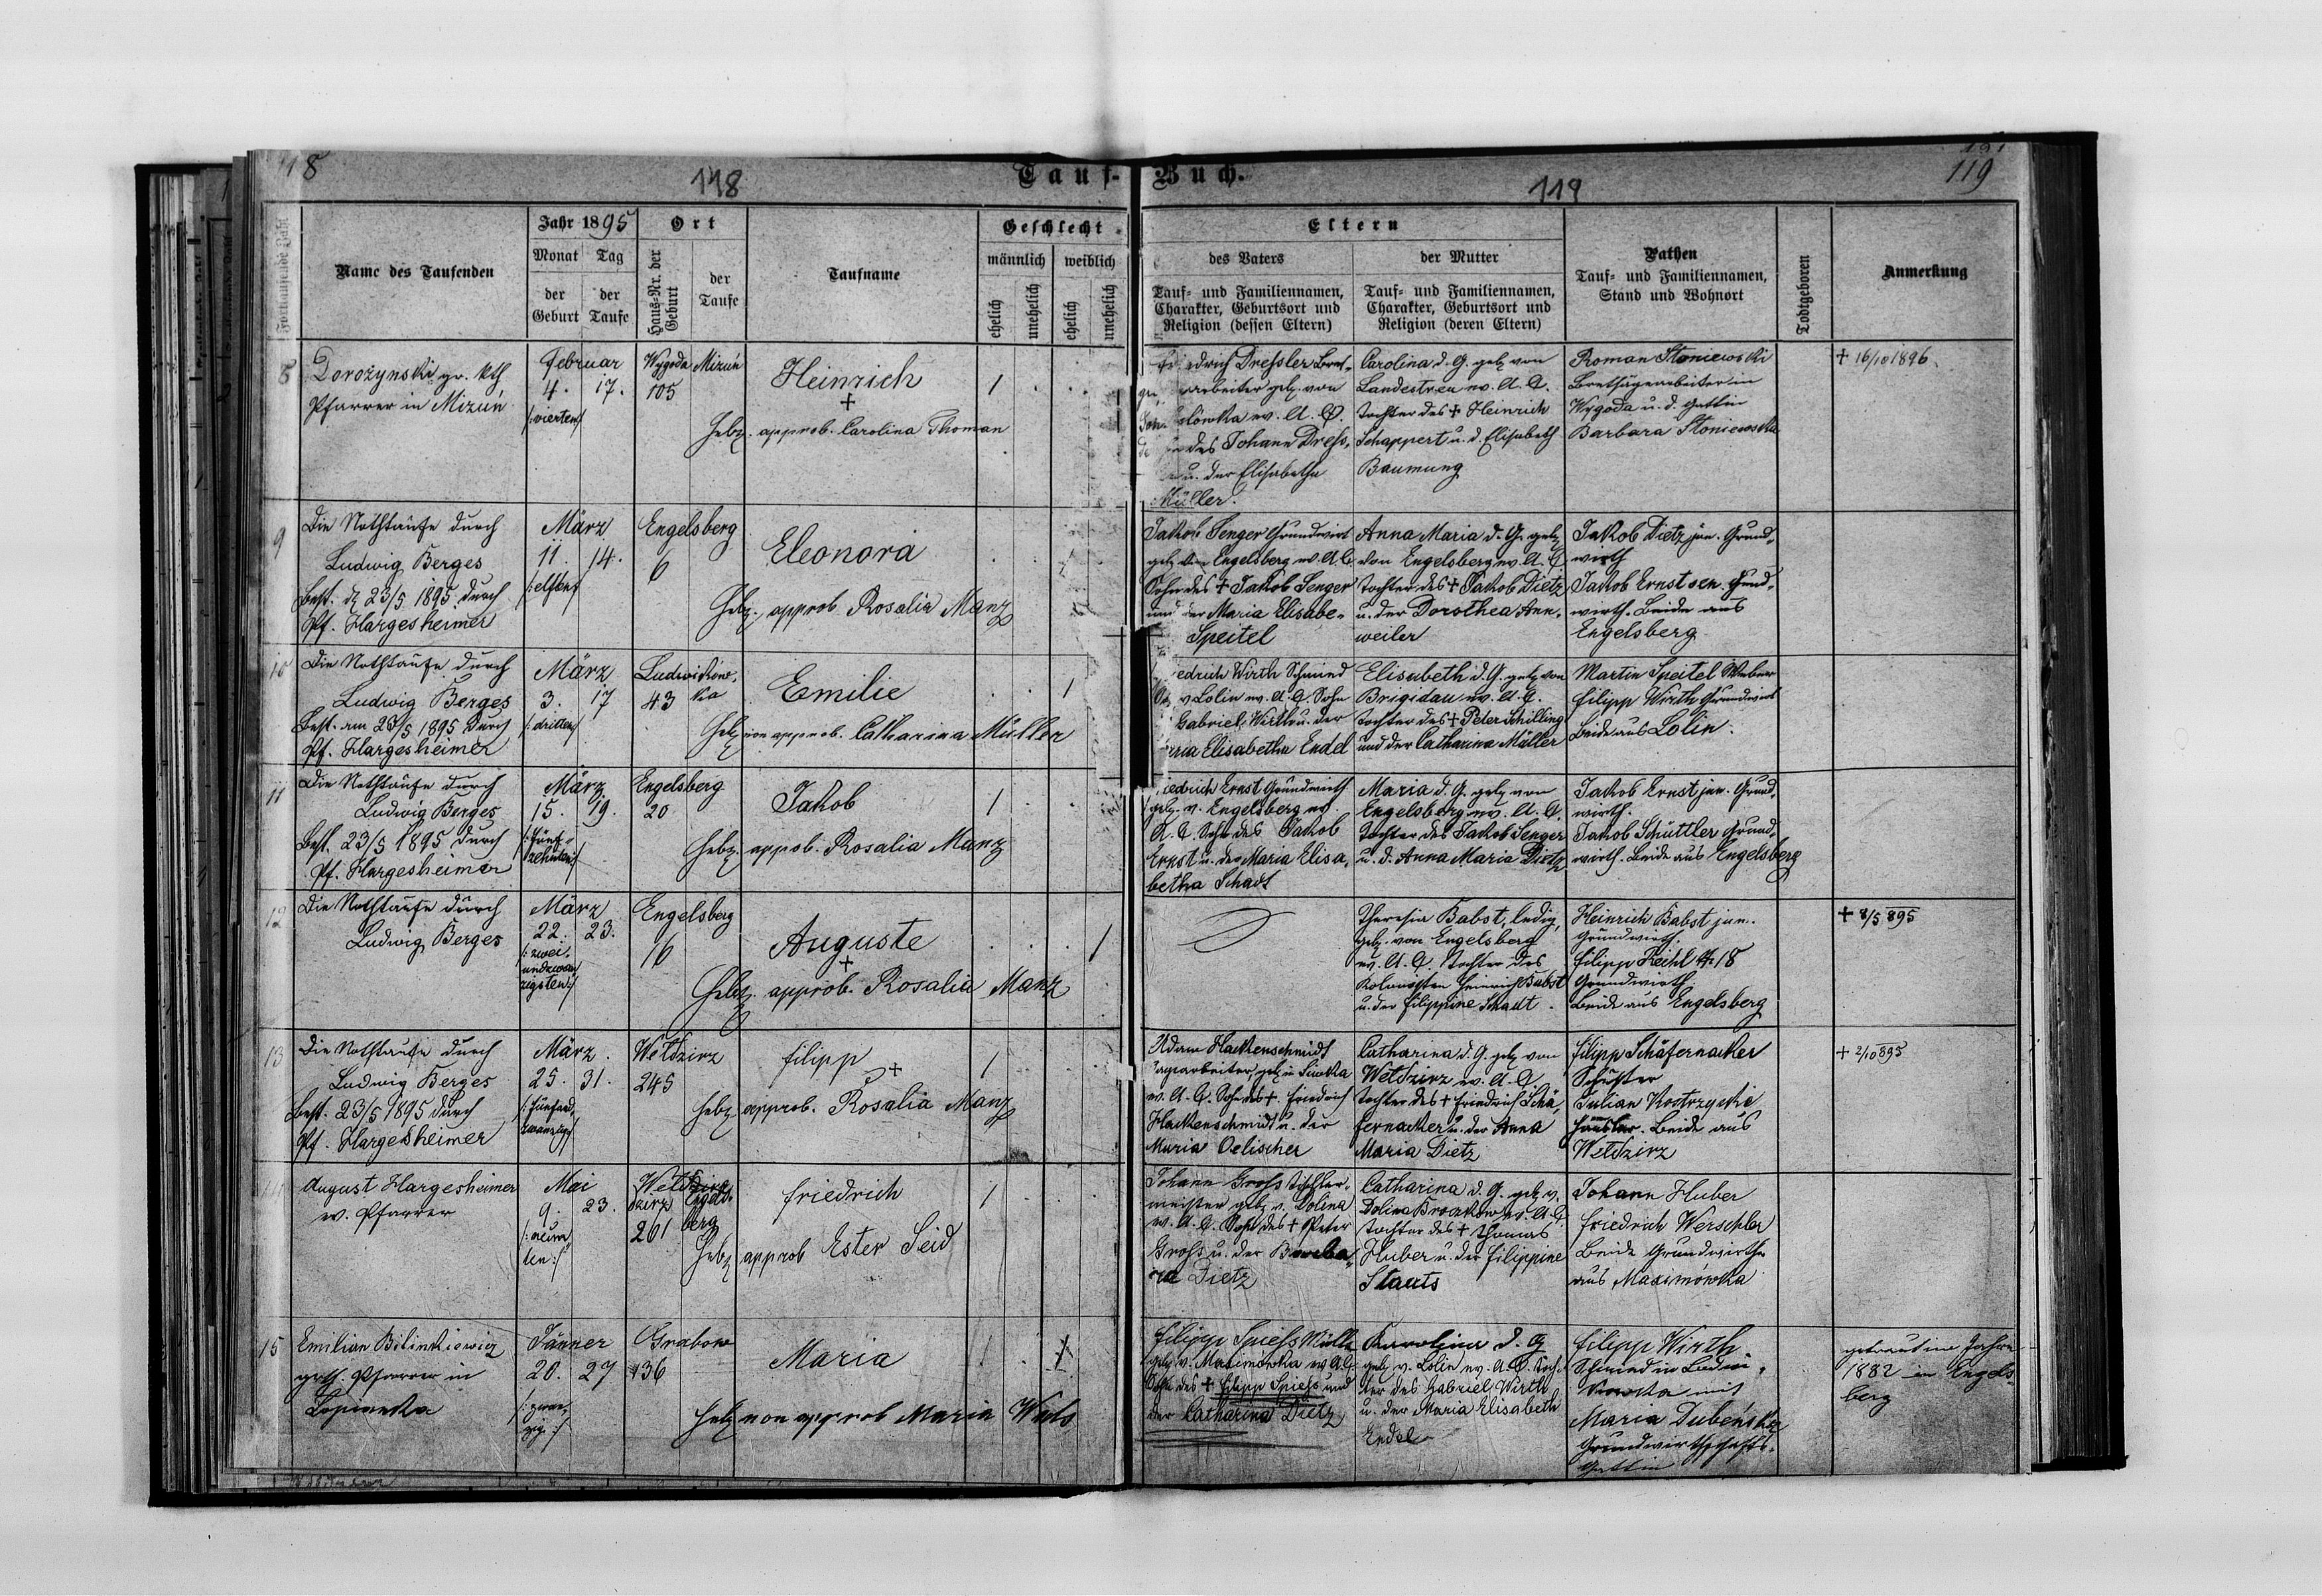 118
119
118
119
Tauf-Buch.
Fortlaufende Zahl
Name des Taufenden
Jahr 1895
Monat
Tag
der Geburt
der Taufe
Ort
Haus-Nr. der Geburt
der Taufe
Taufname
Geschlecht
männlich
weiblich
ehelich
unehelich
ehelich
unehelich
Eltern
des Vaters
Tauf- und Familiennamen,
Charakter, Geburtsort und
Religion (dessen Eltern)
der Mutter
Tauf- und Familiennamen,
Charakter, Geburtsort und
Religion (deren Eltern)
Pathen
Tauf- und Familiennamen,
Stand und Wohnort
Todtgeboren
Anmerkung
8
Dorożynski gr. kth
Pfarrer in Mizuń
Februar
4. 17.
/:vierten:/
Wygoda
105
Mizuń
Heinrich
+
Hebz. approb. Carolina Thoman
1
edrich Dressler Bret-
arbeiter geb. von
lówka ev. A. C.
des Johann Dress,
u. der Elisabetha
Müller.
Carolina d. G. geb. von
Landestreu ev. A. C.
Tochter des + Heinrich
Schappert u. d. Elisabeth
Baumung
Roman Stoniewski
Brettsägearbeiter in
Wygoda u. d. Gattin
Barbara Stoniewska
+ 16/10 1896.
9
Die Nothtaufe durch
Ludwig Berges
Best. d. 23/5 1895 durch
Pf. Hargesheimer
März
11. 14.
/:elften:/
Engelsberg
6
Eleonora
Hebz. approb. Rosalia Manz
1
Jakob Senger Grundwirt
geb. von Engelsberg ev. A. C.
Sohn des + Jakob Senger
und der Maria Elisabe-
Speitel
Anna Maria d. G. geb.
von Engelsberg ev. A. C.
Tochter des + Jakob Dietz
u. der Dorothea Ann-
weiler
Jakob Dietz jun. Grund-
wirth
Jakob Ernst sen. Grund-
wirth. Beide aus
Engelsberg
10
Die Nothtaufe durch
Ludwig Berges
Best. am 23/5 1895 durch
Pf. Hargesheimer
März
3. 17
/:dritten:/
Ludwików-
43 ka
Emilie
Hebz. non approb. Catharina Müller
1
edrich Wirth Schmied
v. Lolin ev. A. C. Sohn
Gabriel Wirth u. der
ria Elisabetha Endel
Elisabeth d. G. geb. von
Brigidau ev. A. C.
Tochter des + Peter Schilling
und der Catharina Müller
Martin Speitel Weber
Filipp Wirth Grundwirt
Beide aus Lolin.
11
Die Nothtaufe durch
Ludwig Berges
Best. 23/5 1895 durch
Pf. Hargesheimer
März
15. 19.
/:fünf-
zehnten:/
Engelsberg
20
Jakob
Hebz. approb. Rosalia Manz
1
iedrich Ernst Grundwirth
geb. v. Engelsberg ev.
A. C. Sohn des Jakob
Ernst u. der Maria Elisa-
betha Schadt
Maria d. G. geb. von
Engelsberg ev. A. C.
Tochter des Jakob Senger
u. d. Anna Maria Dietz
Jakob Ernst jun. Grund-
wirth.
Jakob Schüttler Grund-
wirth. Beide aus Engelsberg
12
Die Nothtaufe durch
Ludwig Berges
März
22. 23.
/:zwei-
undzwan
zigsten:/
Engelsberg
16
Auguste
+
Hebz. approb. Rosalia Manz
1
Theresia Babst, ledig,
geb. von Engelsberg
ev. A. C. Tochter des
Kolonisten Heinrich Babst
u. der Filippine Schadt.
Heinrich Babst jun.
Grundwirth.
Filipp Keihl N. 18
Grundwirth
Beide aus Engelsberg
+ 8/5 895
13
Die Nothtaufe durch
Ludwig Berges
Best. 23/5 1895 durch
Pf. Hargesheimer
März.
25. 31.
/:fünfund
zwanzig:/
Wełdzirz
245
Filipp
+
Hebz. approb. Rosalia Manz
1
Adam Hackenschmidt
agearbeiter geb. in Siwka
ev. A. C. Sohn des + Friedrich
Hackenschmidt u. der
Maria Oelischer
Catharina d. G. geb. von
Wełdzirz ev. A. C.
Tochter des + Friedrich Schä-
fernacker u. der Anna
Maria Dietz
Filipp Schäfernacker
Schuster
Julian Kostrzycki
Beide aus
Wełdzirz
+ 2/10 895
14
August Hargesheimer
ev. Pfarrer
Mai
9. 23.
/:neun
ten:/
Wełdzirz
261
Engels-
berg
Friedrich
Hebz. approb Ester Seid
1
Johann Gross Tischler-
meister geb. v. Dolina
ev. A. C. Sohn des + Peter
Gross u. der Barba-
ra Dietz
Catharina d. G. geb. v.
Dolina Broczków ev. A. C.
Tochter des + Thomas
Huber u. der Filippine
Staats
Johann Huber
Friedrich Werschler
Beide Grundwirthe
aus Maximówka
15
Emilian Bilinkiewicz
grth. Pfarrer in
Lopianka
Jänner
20. 27
/:zwan
zig:/
Grabow
136
Maria
Hebz. non approb Maria
1
Filipp Spiess Müller
geb. v. Maximówka ev A. C.
Sohn des + Filipp Spiess und
der Catharina Dietz
Karolina d. G
geb. v. Lolin ev. A. C. Toch-
ter des Gabriel Wirth
u. der Maria Elisabeth
Endel
Filipp Wirth
Schmied in Ludwi-
kowka mit
Maria Dubeńska
Grundwirthschafts-
Gattin
getraut im Jahre
1882 in Engels-
berg